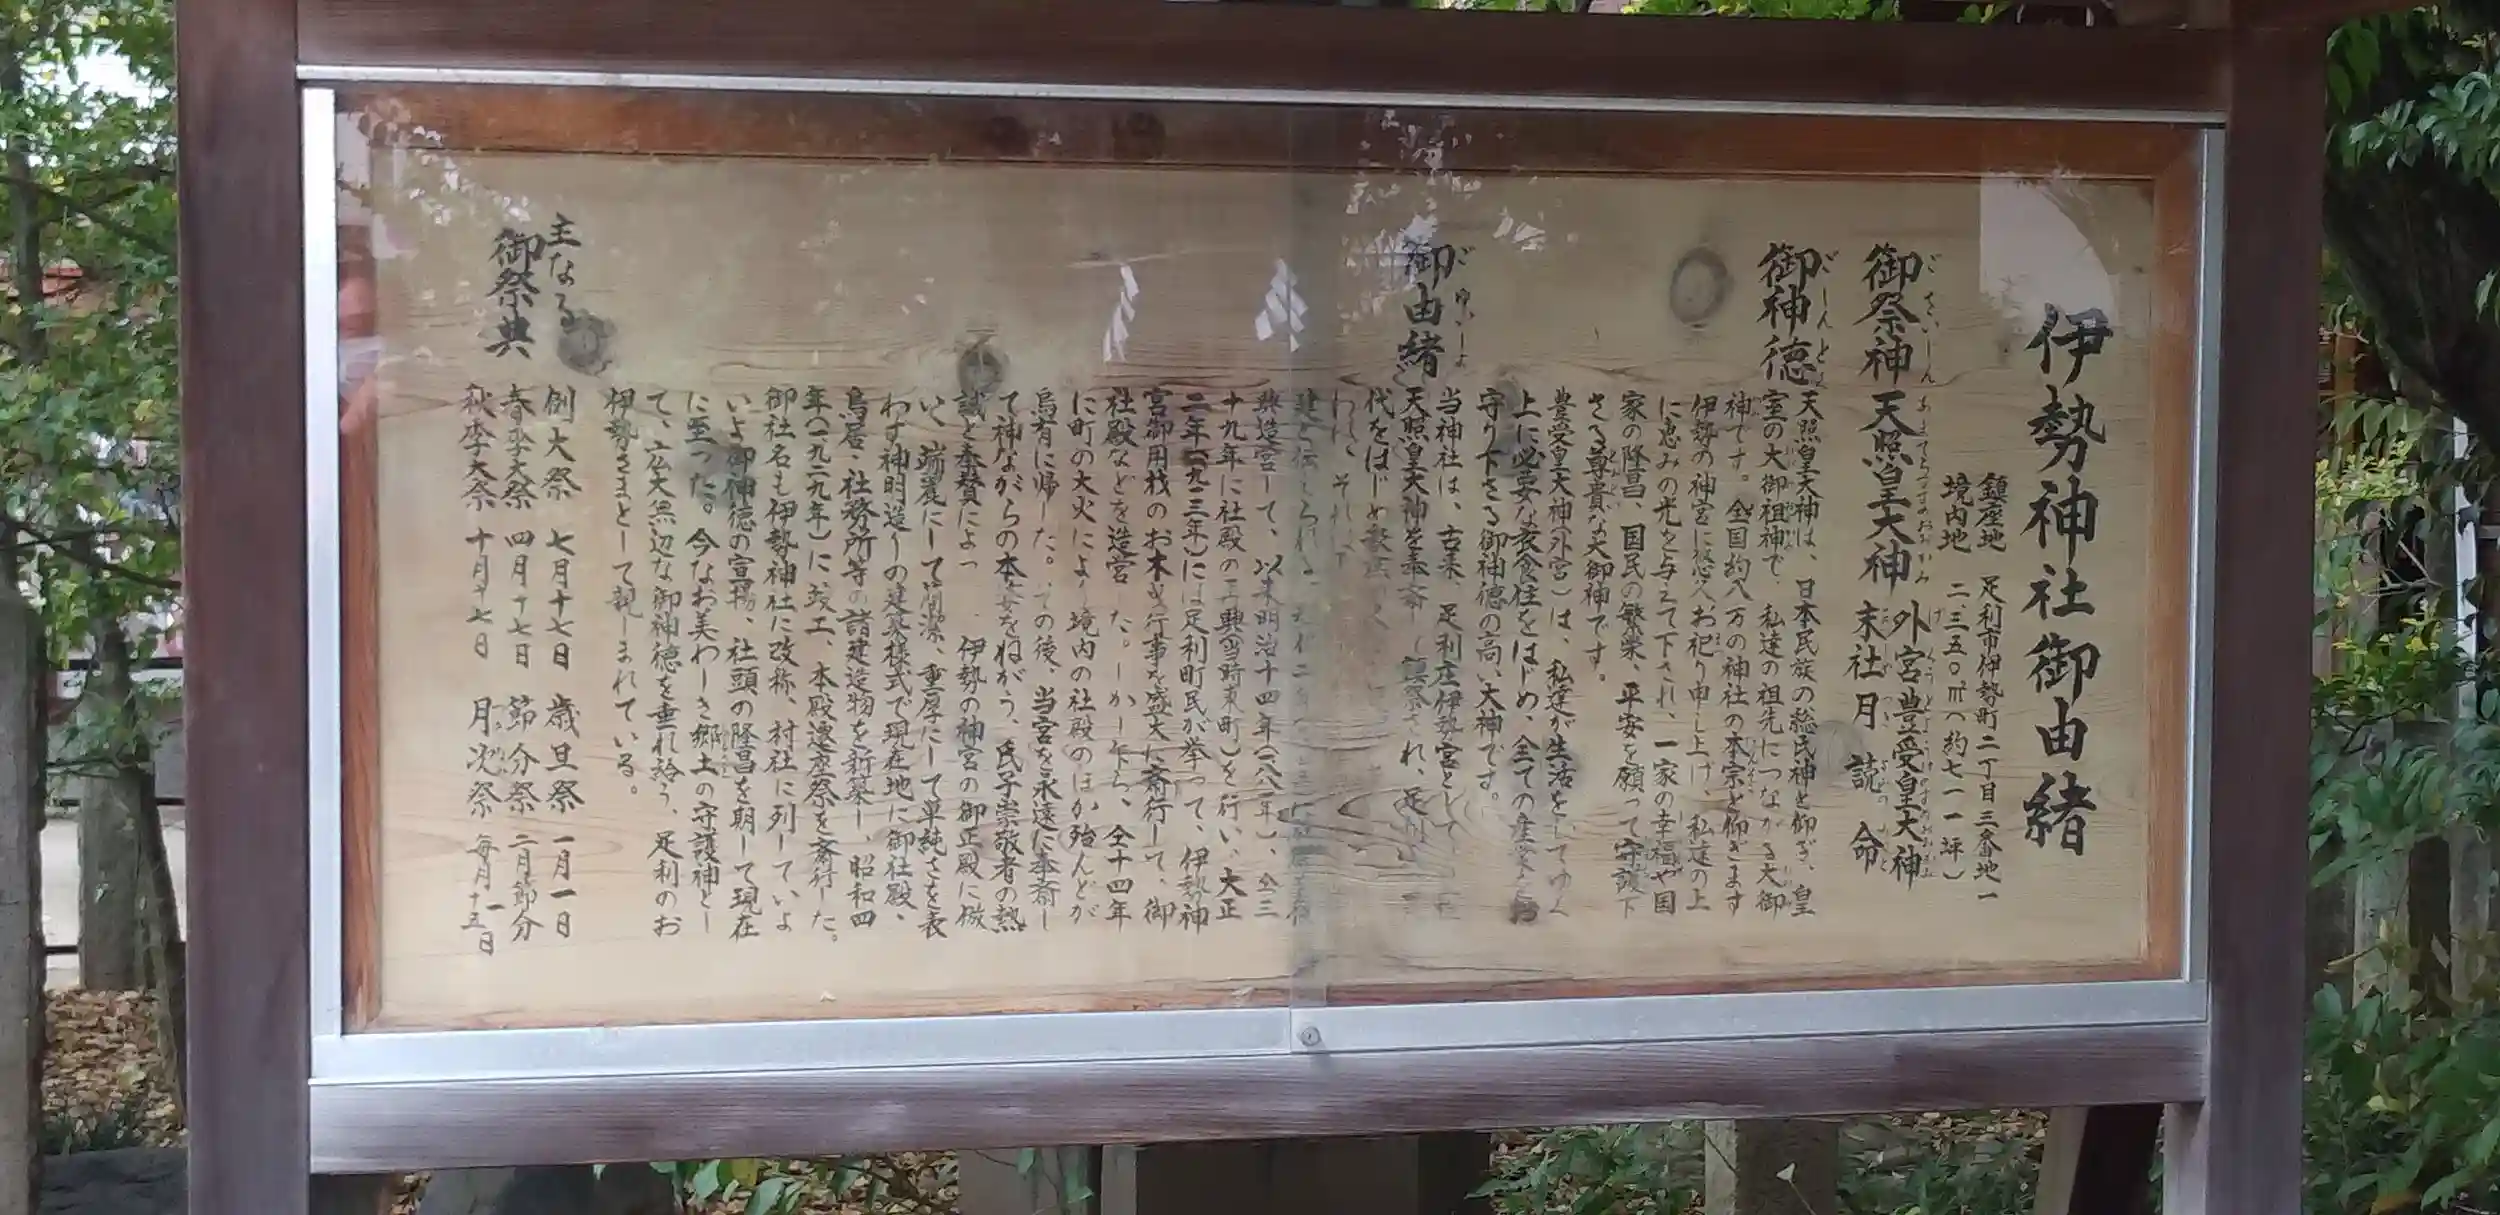 伊勢神社御由緒
鎮座地 足利市伊勢町二丁目三番地一
境内地 二、三五〇㎡(約七一一坪)
御祭神 天照皇大神 外宮豊受皇大神
末社 月読命
御神徳 天照皇大神は、日本民族の総氏神と仰ぎ、皇
室の大御祖神で、私達の祖先につながる大御
神です。全国約八万の神社の本宗と仰ぎます
伊勢の神宮に悠久お祀り申し上げ、私達の上
に恵みの光を与えて下され、一家の幸福や国
家の隆昌、国民の繁栄、平安を願って守護下
さる尊貴な大御神です。
豊受皇大神(外宮)は、私達が生活をしてゆく
上に必要な衣食住をはじめ、全ての産業を
守り下さる御神徳の高い大神です。
御由緒 当神社は、古来、足利庄伊勢宮として
天照皇大神を奉斎し鎮祭され、足利
代をはじめ
われ、それ
建と伝えられる
興造宮して、以来明治十四年(一八八一年)、仝三
十九年に社殿の再興(当時東町)を行い、大正
二年(一九一三年)には足利町民が挙って、伊勢神
宮御用材のお木曳行事を盛大に斎行して、御
社殿などを造営した。しかし乍ら、仝十四年
に町の大火により境内の社殿のほか殆んどが
烏有に帰した。その後、当宮を永遠に奉斎し
て神ながらの本姿をねがう、氏子崇敬者の熱
誠と奉賛によって、伊勢の神宮の御正殿に倣
い、端麗にして簡潔、重厚にして単純さを表
わす神明造りの建築様式で現在地に御社殿、
鳥居、社務所等の諸建造物を新築し、昭和四
年(一九二九年)に竣工、本殿遷座祭を斎行した。
御社名も伊勢神社に改称、村社に列していよ
いよ御神徳の宣揚、社頭の隆昌を期して現在
に至った。今なお美わしき郷土の守護神とし
て、広大無辺な御神徳を垂れ給う、足利のお
伊勢さまとして親しまれている。
主なる
御祭典
例大祭 七月十七日 歳旦祭 一月一日
春季大祭 四月十七日 節分祭 二月節分
秋季大祭 十月十七日 月次祭 毎月一十五日